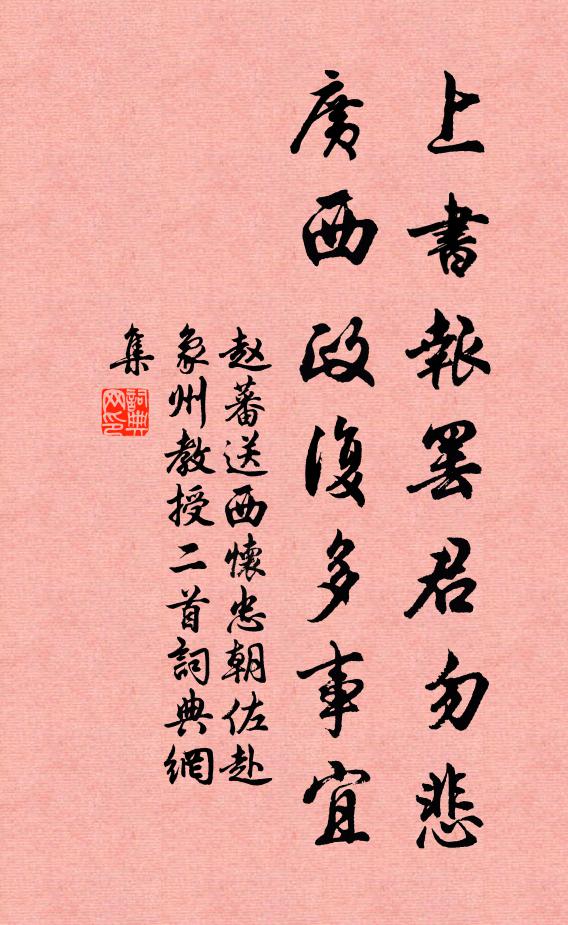 上書報罷君勿悲
廣西政復多事宜
赵蕃送西懷忠朝佐赴
象州教授二首詞典網
集
詞典
网印